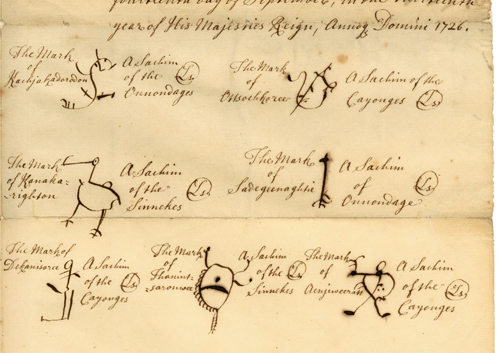 fourteenth day of September, in the thirteenth
year of His Majesties Reign, Annoq Domini 1726.
The Mark
of
Kachjakadorodon
A Sachim
of the
Onnondages
Ls
The Mark
of
A Sachim of the
Cayonges
Ls
The Mark
of Kanaka-
righton
A Sachim
of the
Sinnekes
Ls
The Mark
of
Sadegeenaghtie
A Sachim
of
Onnondage
Ls
The Mark of
Dekanisoree
A Sachim
of the
Cayonges
Ls
The Mark
of
A Sachim
of the
Sinnekes
Ls
The Mark
of
A Sachim
of the
Cayonges
Ls